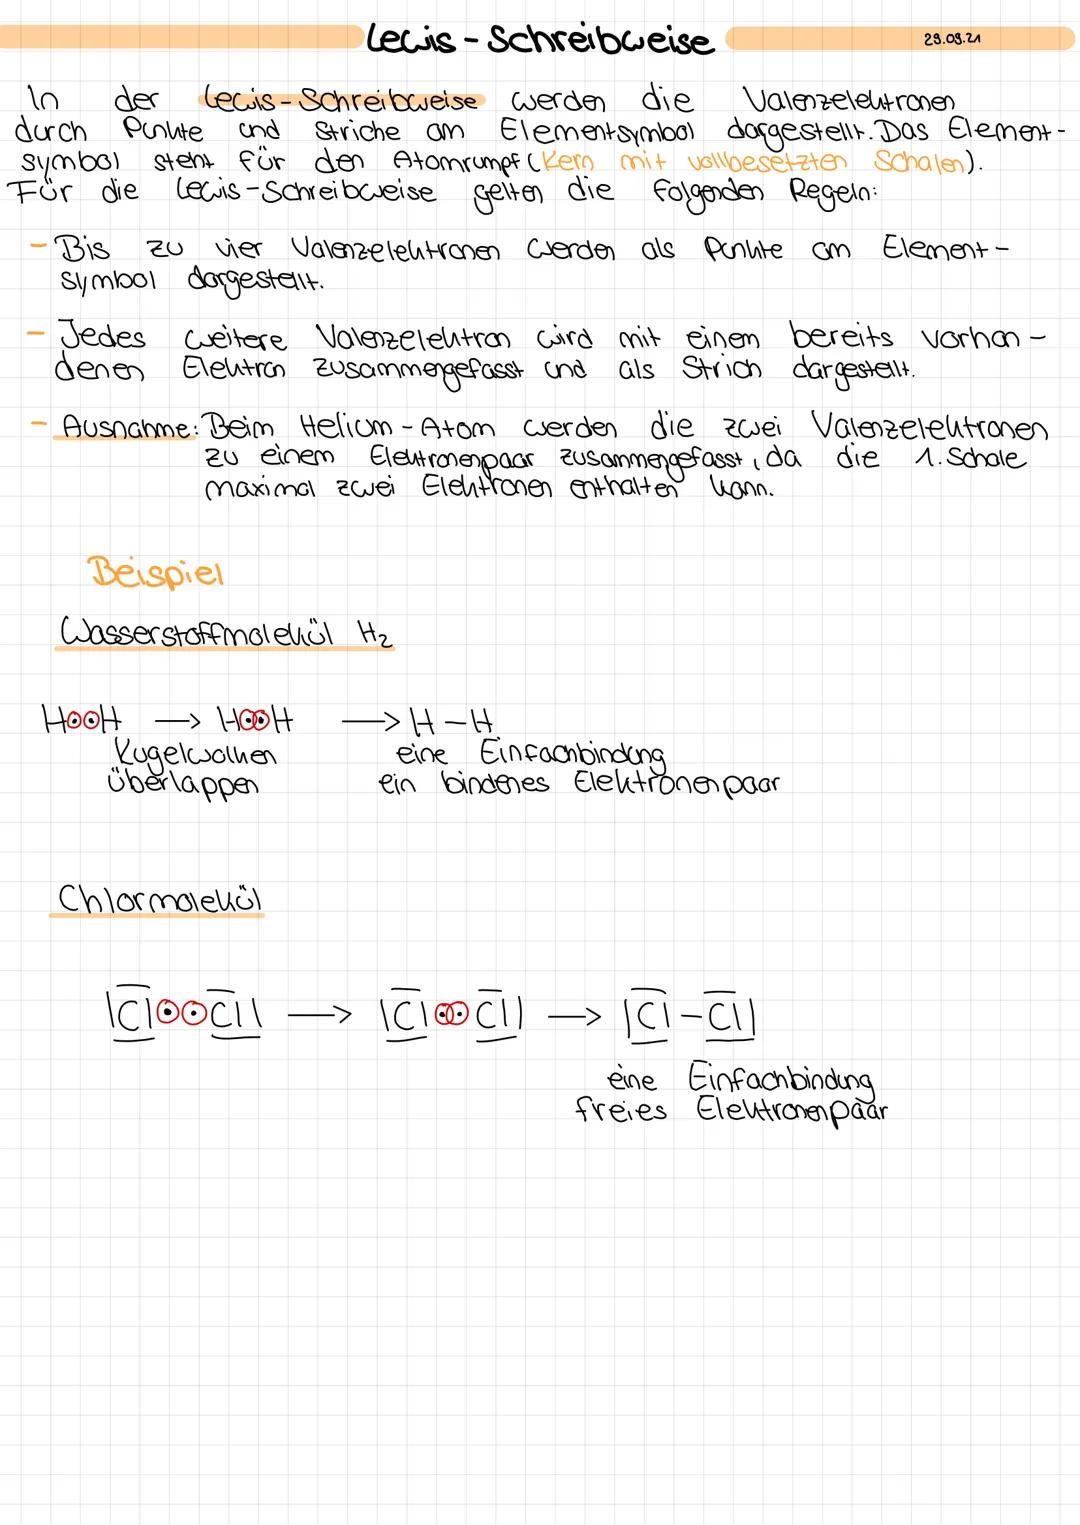 Lewis-Schreibweise 29.09.21
In der Lewis-Schreibweise werden die Valenzelektronen
durch Punkte und Striche am Elementsymbol dargestellt. Das Element-
symbol steht für den Atomrumpf (Kern mit vollbesetzten Schalen).
Für die Lewis-Schreibweise gelten die folgenden Regeln:
- Bis zu vier Valenzelektronen werden als Punkte am Element-
symbol dargestellt.
- Jedes weitere Valenzelektron wird mit einem bereits vorhan-
denen Elektron zusammengefasst und als Strich dargestellt.
- Ausnahme: Beim Helium-Atom werden die zwei Valenzelektronen
zu einem Elektronenpaar zusammengefasst, da die 1. Schale
maximal zwei Elektronen enthalten kann.
Beispiel
Wasserstoffmolekül H₂
H⊙⊙H → H⊙⊙H → H-H
Kugelwolken eine Einfachbindung
überlappen ein bindenes Elektronenpaar
Chlormolekül
|Cl⊙⊙Cl| → |Cl⊙⊙Cl| → |Cl-Cl|
eine Einfachbindung
freies Elektronenpaar